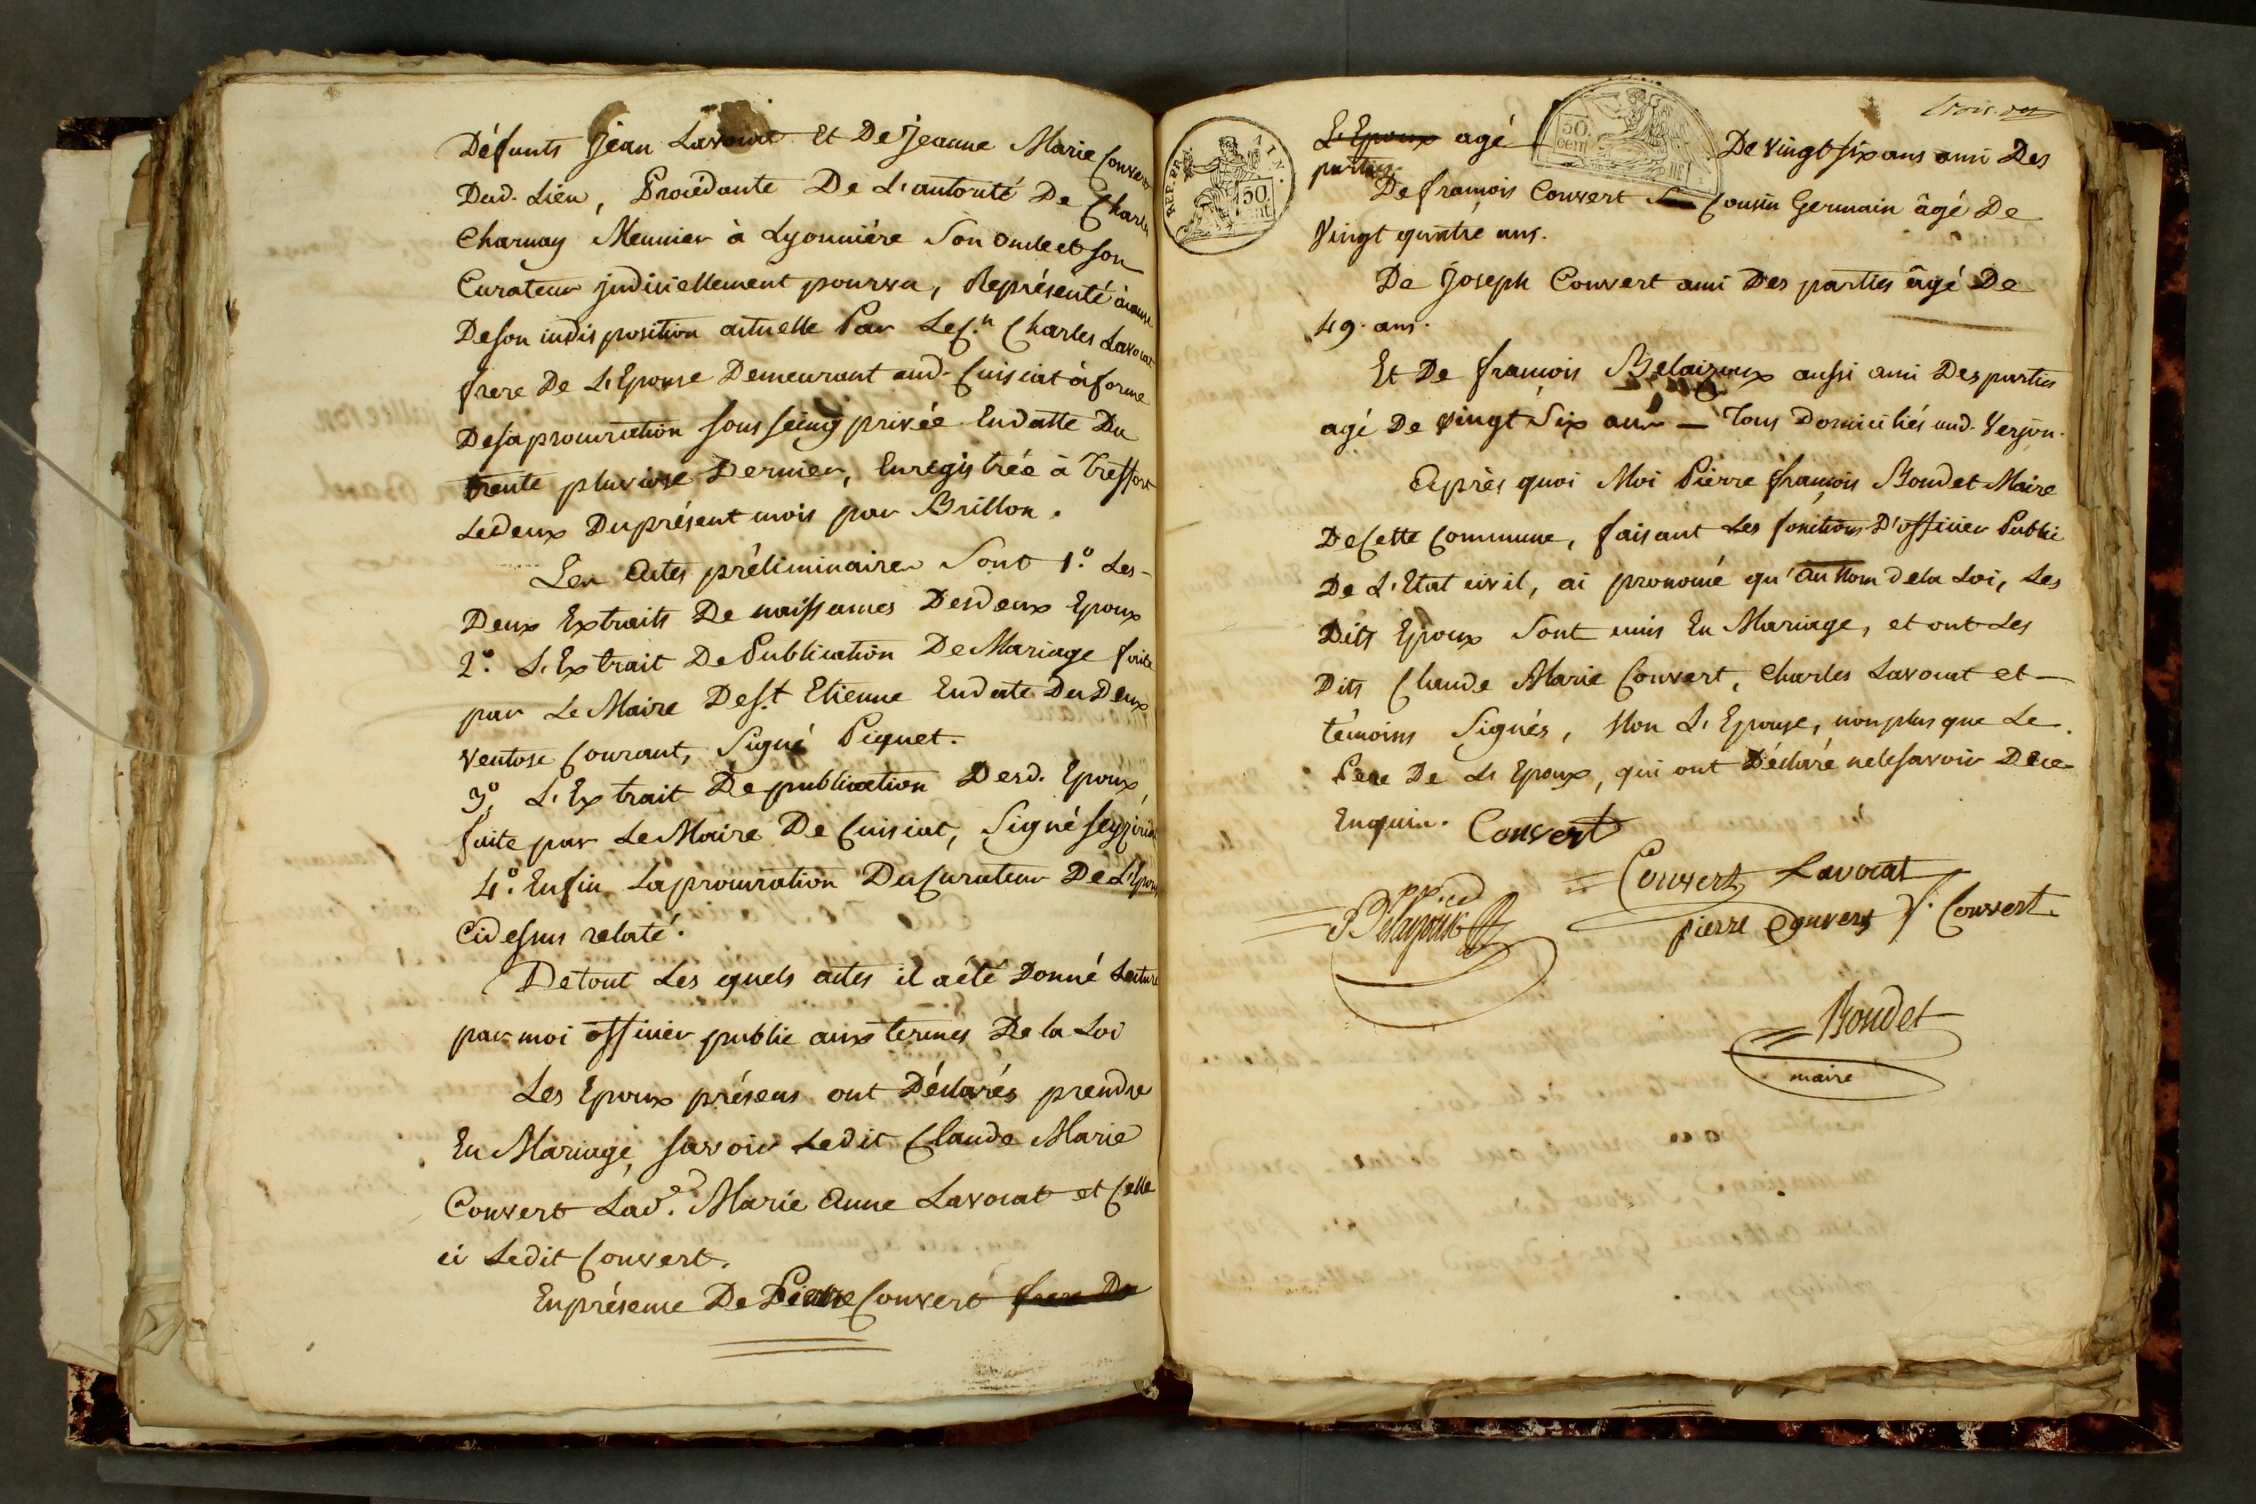 Défunts Jean Lavocat Et De Jeanne Marie Convert
Dud. Lieu, Procédante De L'autorité De Charles
Charnay Meunier à Lyonnière Son oncle et son
Curateur judiciellement pourvu, Représenté à cause
De son indisposition actuelle Par Le C.n Charles Lavocat
frere De L'Epouse Demeurant aud. Cuisiat à forme
De sa procuration sous seing privée En datte Du
trente pluviose Dernier, Enregistrée à Treffort
Le deux Du présent mois par Brillon.
Les Actes préliminaires Sont 1.° Les
Deux Extraits De naissances Des deux Epoux
2.° L'Extrait De Publication De Mariage faite
par Le Maire De St. Etienne En date Du Deux
ventose Courant, Signé Piquet.
3.° L'Extrait De publication Desd. Epoux,
faite par Le Maire De Cuisiat, Signé
4.° Enfin La procuration Du Curateur De L'Epouse
Cidessus relaté.
De tout Les quels actes il a été Donné Lecture
par moi officier public aux termes De la Loi
Les Epoux présens ont Déclarés prendre
En Mariage, savoir Ledit Claude Marie
Convert Lad.e Marie Anne Lavocat et Celle
ci Ledit Convert.
En présence De Pierre Convert frere De
REP. FRA. AIN.
50. cent
50. cent
L'Epoux agé De vingt six ans ami Des
parties.
De françois Convert Cousin Germain âgé De
Vingt quatre ans.
De Joseph Convert ami Des parties âgé De
49. ans.
Et De françois Belaisoux aussi ami Des parties
agé De vingt Six ans — Tous Domiciliés aud. Verjon.
Après quoi Moi Pierre françois Boudet Maire
De Cette Commune, faisant Les fonctions D'officier Public
De L'Etat civil, ai prononcé qu'au Nom de la Loi, Les
Dits Epoux Sont unis En Mariage, et ont Les
Dits Claude Marie Convert, Charles Lavocat et
témoins Signés, Non L'Epouse, non plus que Le
Pere De L'Epoux, qui ont Déclaré ne le savoir De ce
Enquis. Convert
Convert Lavocat
pierre Convert f. Convert
Boudet
maire